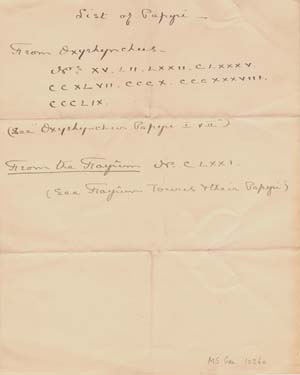 List of Papyri
From Oxyrhynchus.
Nos. XV. LII. LXXII. CLXXXV.
CCXLVII. CCCX. CCCXXXVIII.
CCCLIX.
(See "Oxyrhynchus Papyri I & II")
From the Fayûm No. CLXXI.
(See Fayûm Towns & their Papyri)
MS Gen 1026